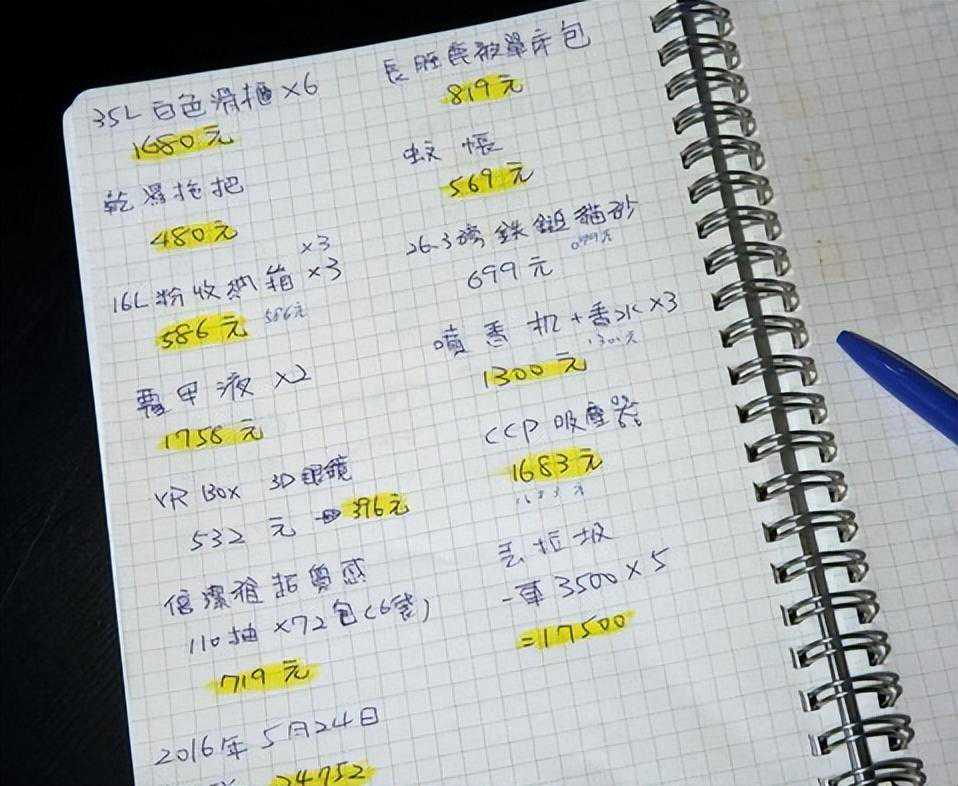 35L白色滑柜×6
1680元
乾濕拖把
480元
×3
16L粉收納箱×3
586元 586元
覆甲液×2
1758元
VR Box 3D眼鏡
532元 396元
倍潔雅超質感
110抽×72包(6袋)
719元
2016年5月24日
24752
長腿鹿被單床包
819元
蚊帳
569元
26.3磅鉄鎚貓砂
699元
699元
噴香机+香水×3
1300元
1300元
CCP吸塵器
1683元
1683元
丟垃圾
一車3500×5
=17500